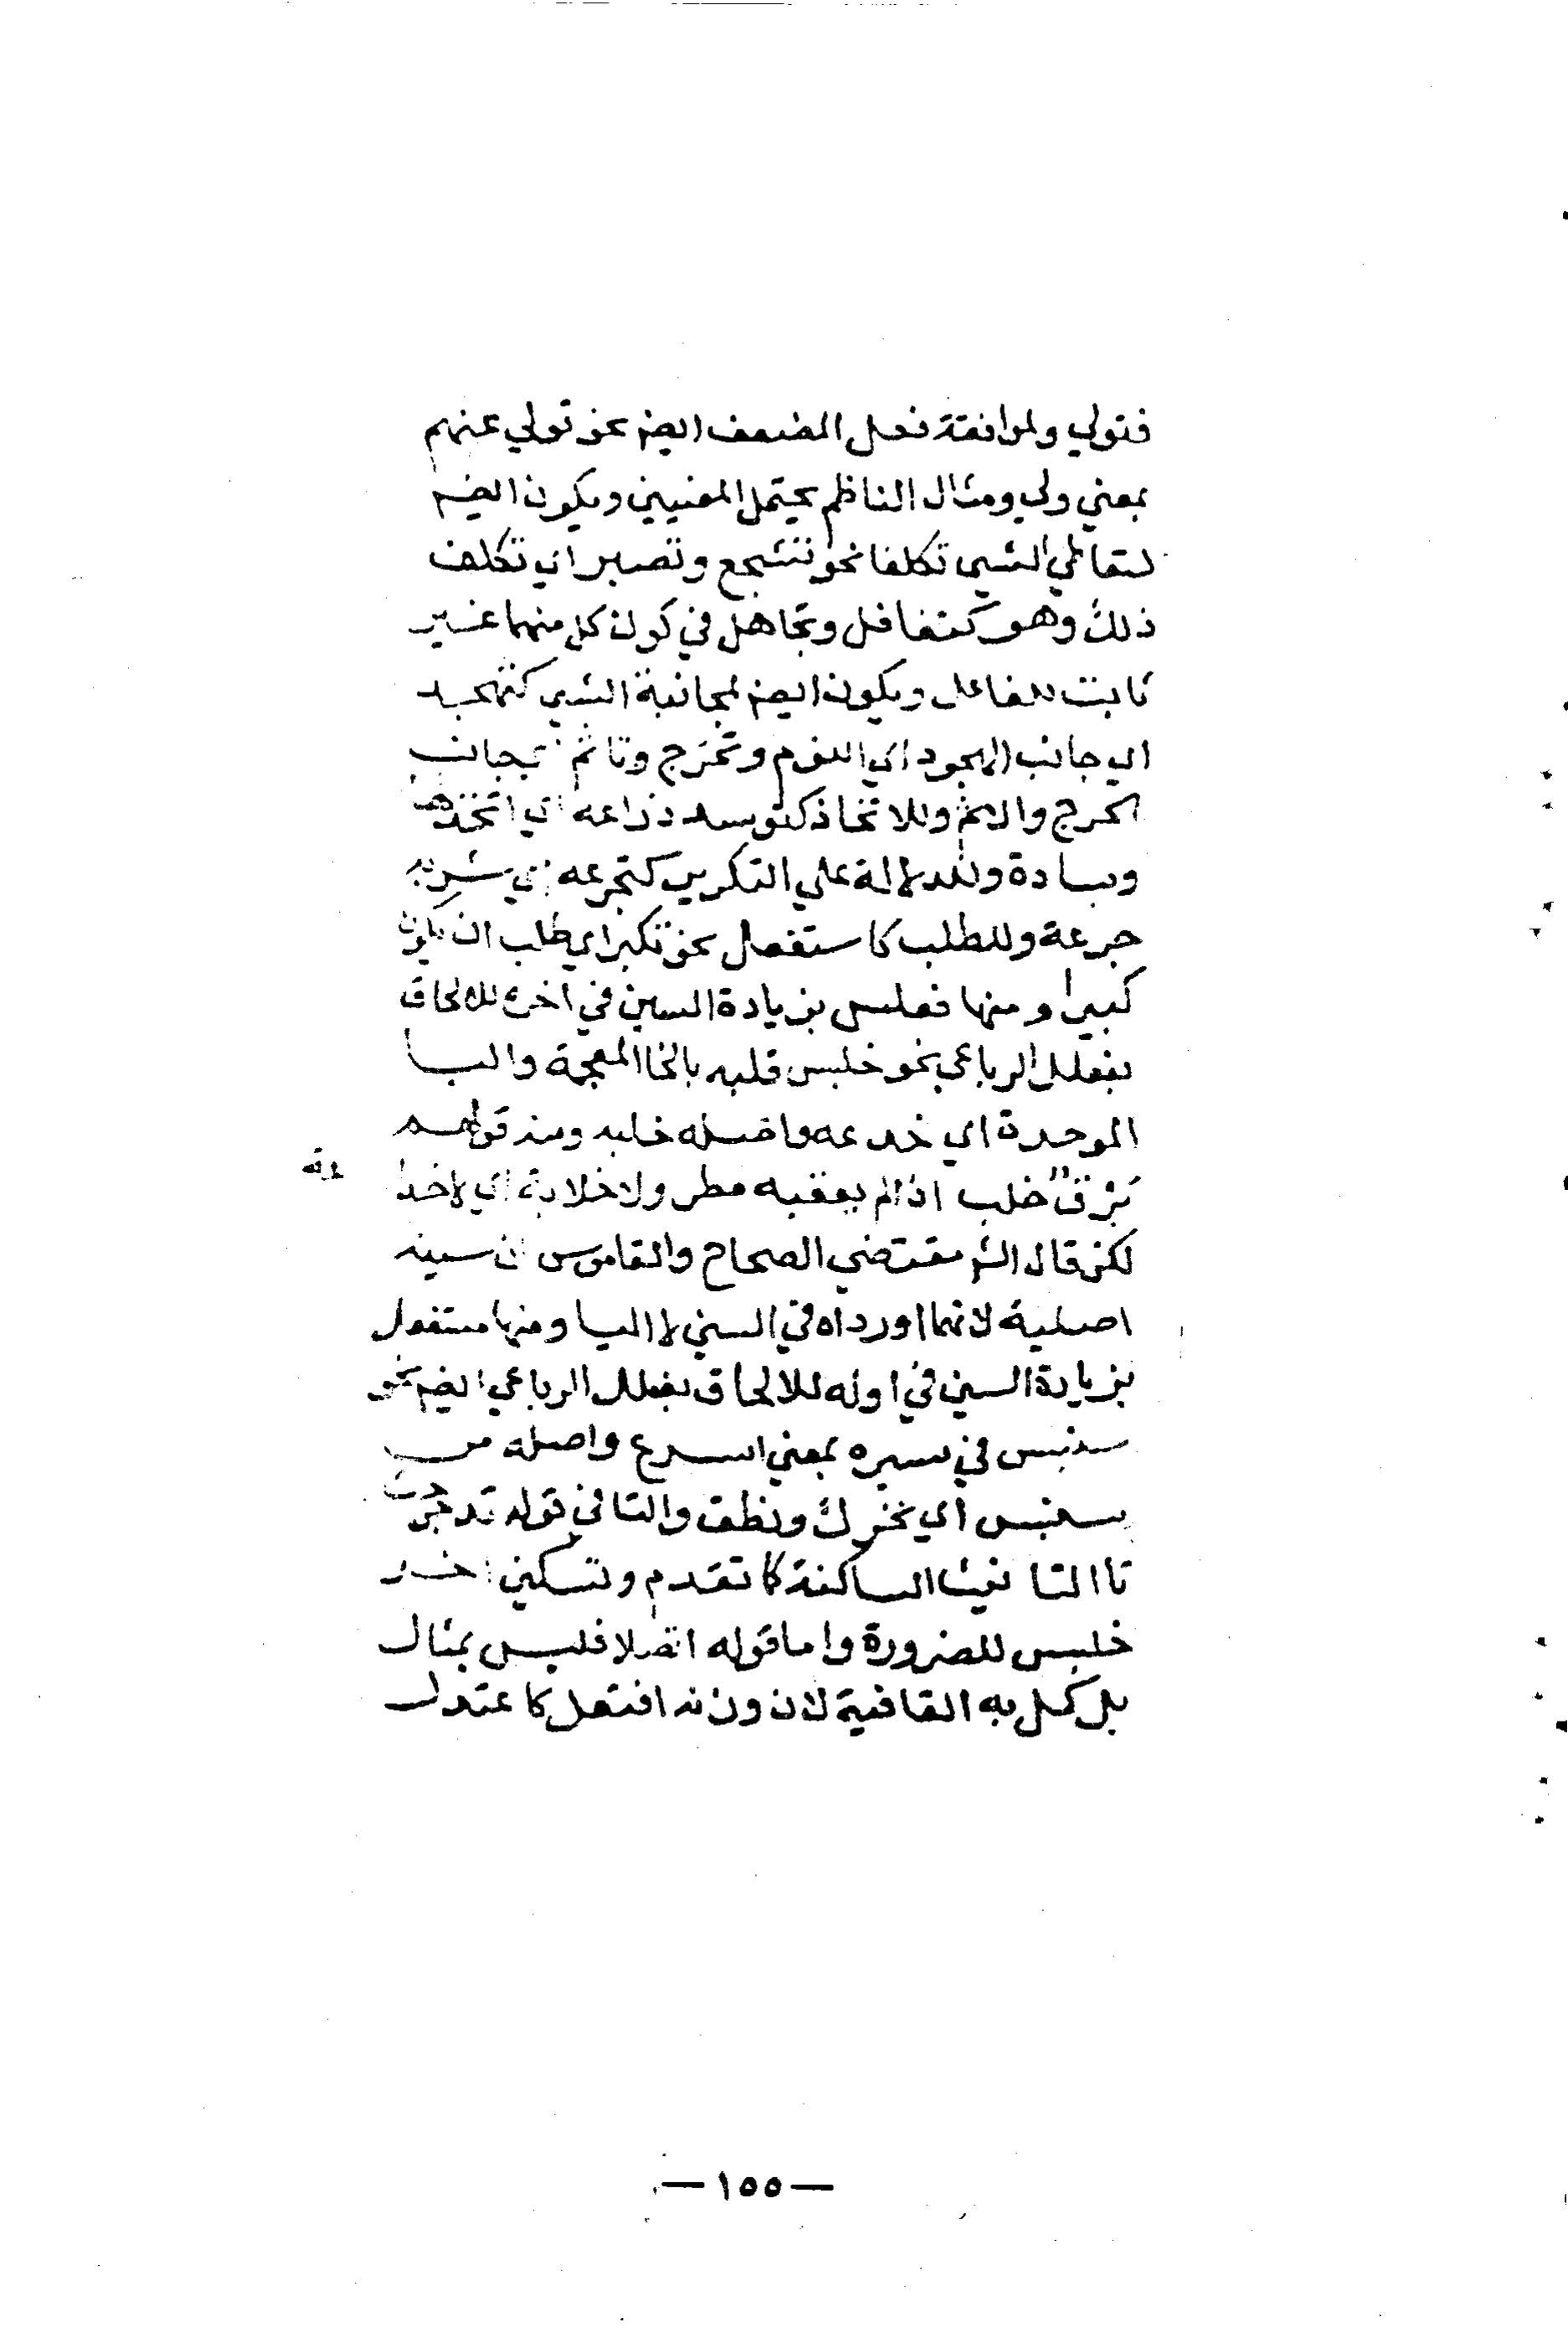 فتولي ولموافقة فعل المضعف ايضم نحو تولي عنهم
بمعني ولي ومثال الناظم يحتمل المعنيين ويكون ايضم
لتعاطي الشي تكلفا نحو تشجع وتصبر اي تكلف
ذلك وهو كتغافل وتجاهل في كون كل منهما غير
ثابت للفاعل ويكون ايضم لمجانبة الشي كتهجد
اي جانب الهجود اي النوم وتحرج وتاثم جانب
الحرج والاثم وللاتخاذ كتوسد ذراعه اي اتخذه
وسادة وللدلالة علي التكرير كتجرعه اي شربه
جرعة وللطلب كاستفعل نحو تكبر اي طلب ان يكون
كبيرا ومنها فعلس بزيادة السين في اخره للالحاق
بفعلل الرباعي نحو خلبس قلبه بالخا المعجمة والبا
الموحدة اي خدعه واصله خلبه ومنه قولهم
بَرْقٌ خلب اذا لم يعقبه مطر ولا خلابة اي لا خدا عة
لكن قال الشر مقتضي الصحاح والقاموس ان سينه
اصلية لانهما اورداه في السين لا البا ومنها سنفعل
بزيادة السين في اوله للالحاق بفعلل الرباعي ايضم نحو
سنبس في سيره بمعني اسرع واصله من
نبس اي تحرك ونطق والتا في قوله
تا التانيث الساكنة كما تقدم وتسكين اخر
خلبس للضرورة واما قوله اتصلا فليس بمثال
بل كمل به القافية لان وزنه افتعل كاعتدل
— ١٥٥ —